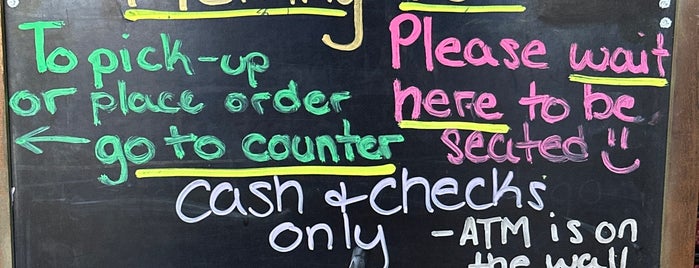 To pick-up
or place order
← go to counter
Please wait
here to be
seated :)
cash & checks
only
- ATM is on
the wall